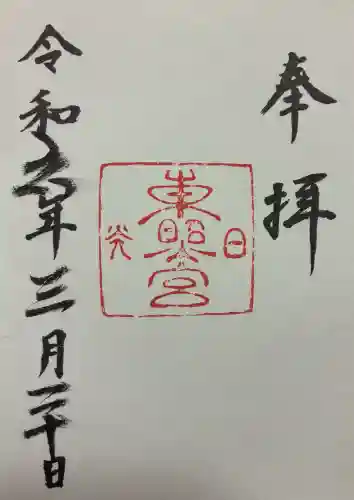 奉拝
日光
東照宮
令和年三月二十日